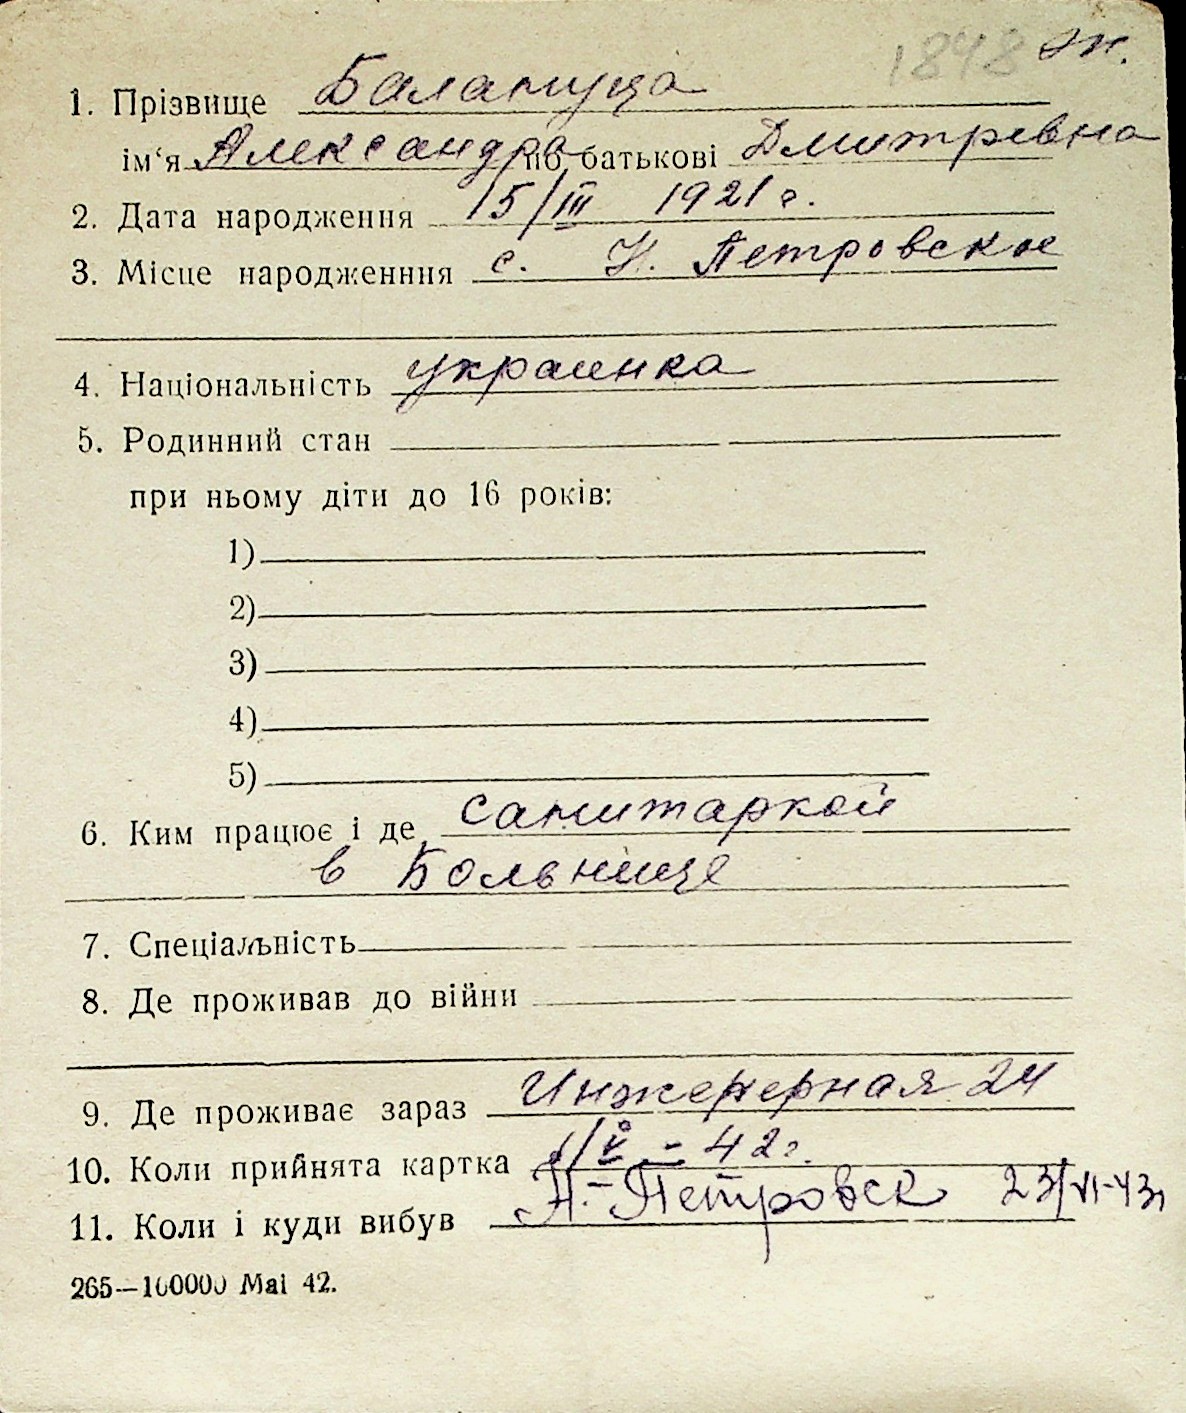 1848 ж.
1. Прізвище Балануца
ім‘я Александра по батькові Дмитревна
2. Дата народження 15/III 1921 г.
3. Місце народженння с. Н. Петровское
4. Національність украинка
5. Родинний стан
при ньому діти до 16 років:
1)
2)
3)
4)
5)
6. Ким працює і де санитаркой
в Больнице
7. Спеціальність
8. Де проживав до війни
9. Де проживає зараз Инженерная 24
10. Коли прийнята картка 1/V – 42 г.
11. Коли і куди вибув Н.-Петровск 23/VI-43
265—100000 Mai 42.